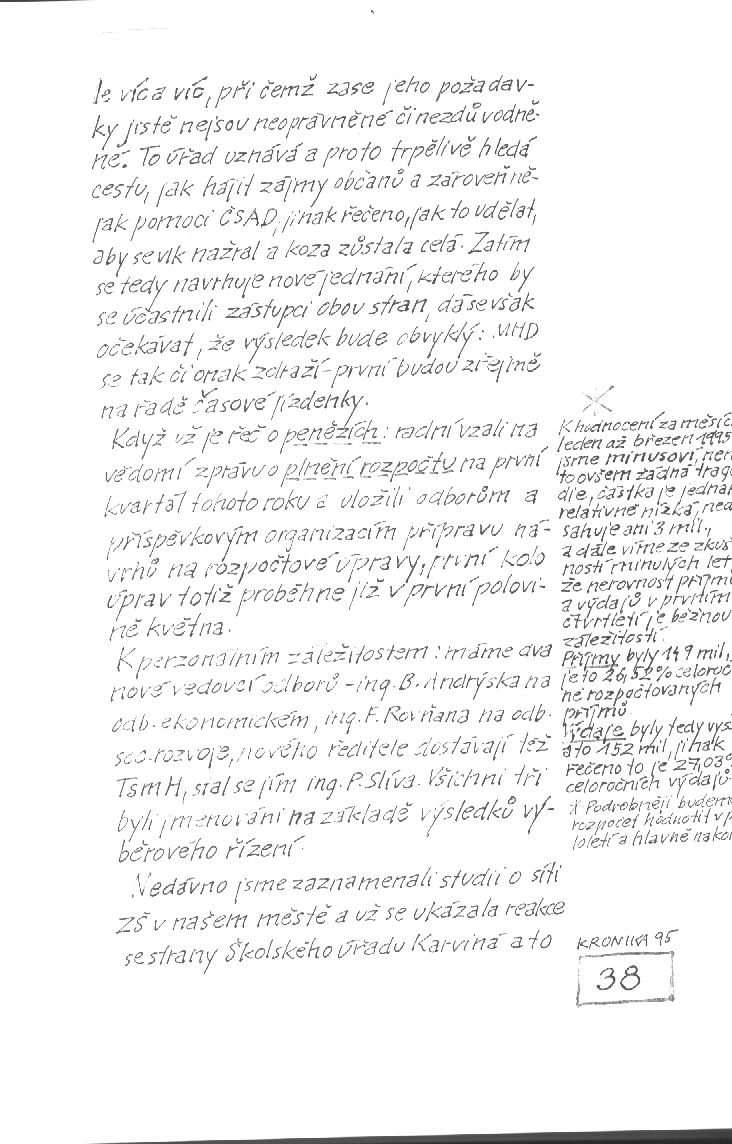 le víc a víc, při čemž zase jeho požadav-
ky jistě nejsou neoprávněné či nezdůvodně-
né. To úřad uznává a proto trpělivě hledá
cestu, jak hájit zájmy občanů a zároveň ně-
jak pomoci ČSAD, jinak řečeno, jak to udělat,
aby se vlk nažral a koza zůstala celá. Zatím
se tedy navrhuje nové jednání, kterého by
se účastnili zástupci obou stran, dá se však
očekávat, že výsledek bude obvyklý: MHD
se tak či onak zdraží - první budou zřejmě
na řadě časové jízdenky.
Když už je řeč o penězích: radní vzali na
vědomí zprávu o plnění rozpočtu na první
kvartál tohoto roku a uložili odborům a
příspěvkovým organizacím přípravu ná-
vrhů na rozpočtové úpravy, první kolo
úprav totiž proběhne již v první polovi-
ně května.
K perzonálním záležitostem: máme dva
nové vedoucí odborů - ing. B. Andrýska na
odb. ekonomickém, ing. F. Rovňana na odb.
soc. rozvoje, nového ředitele dostávají též
TsmH, stal se jím ing. P. Slíva. Všichni tři
byli jmenováni na základě výsledků vý-
běrového řízení.
Nedávno jsme zaznamenali studii o síti
ZŠ v našem městě a už se ukázala reakce
se strany Školského úřadu Karviná a to
K hodnocení za měsíc
leden až březen 1995
jsme minusoví, není
to ovšem žádná trag
die, částka je jednak
relativně nízká, nedo
sahuje ani 3 mil.,
a dále víme ze zkuš
ností minulých let,
že nerovnost příjmů
a výdajů v prvním
čtvrtletí je běžnou
záležitostí.
Příjmy byly 149 mil,
je to 26,52% celoroč
ně rozpočtovaných
příjmů.
Výdaje byly tedy vyš
a to 152 mil, jinak
řečeno to je 27,03%
celoročních výdajů.
* Podrobněji budeme
rozpočet hodnotit v p
loletí a hlavně na kon
KRONIKA 95
38